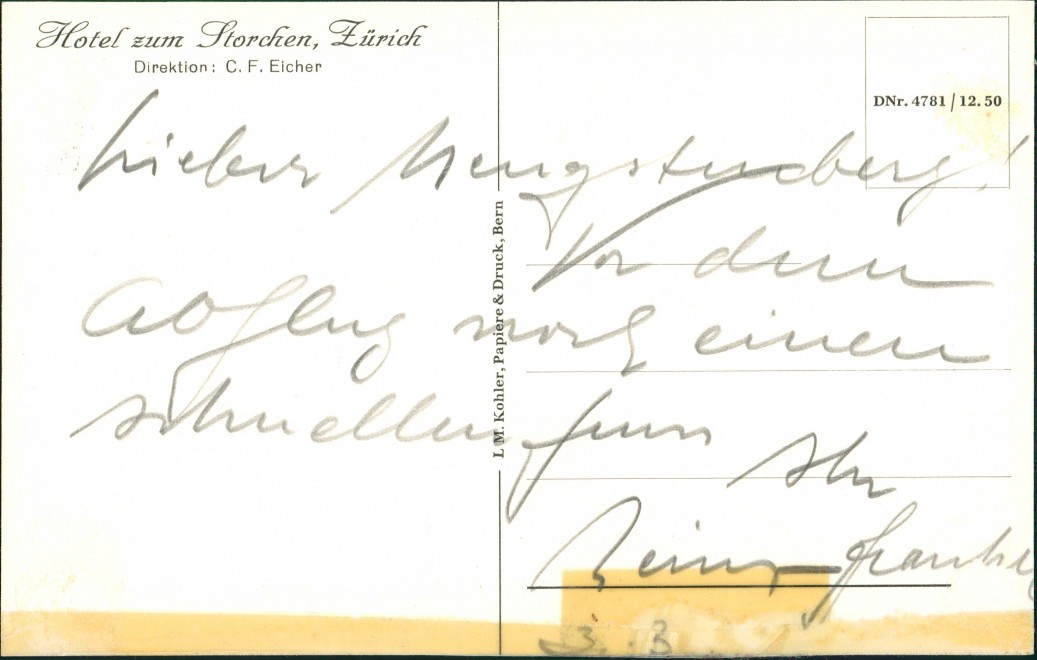 Hotel zum Storchen, Zürich
Direktion: C. F. Eicher
DNr. 4781 / 12.50
Lieber Hengstenberg!
Vor dem
Abflug noch einen
schnellen Gruss
Ihr
L. M. Kohler, Papiere & Druck, Bern